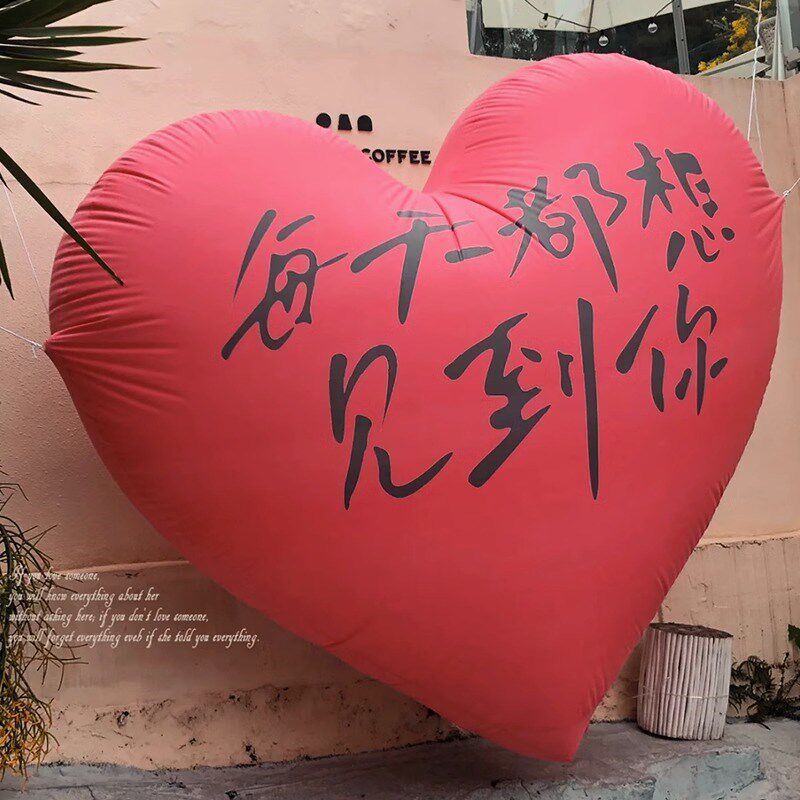 COFFEE
每天都想
见到你
If you love someone,
you will know everything about her
without asking here; if you don't love someone,
you will forget everything eveb if she told you everything.